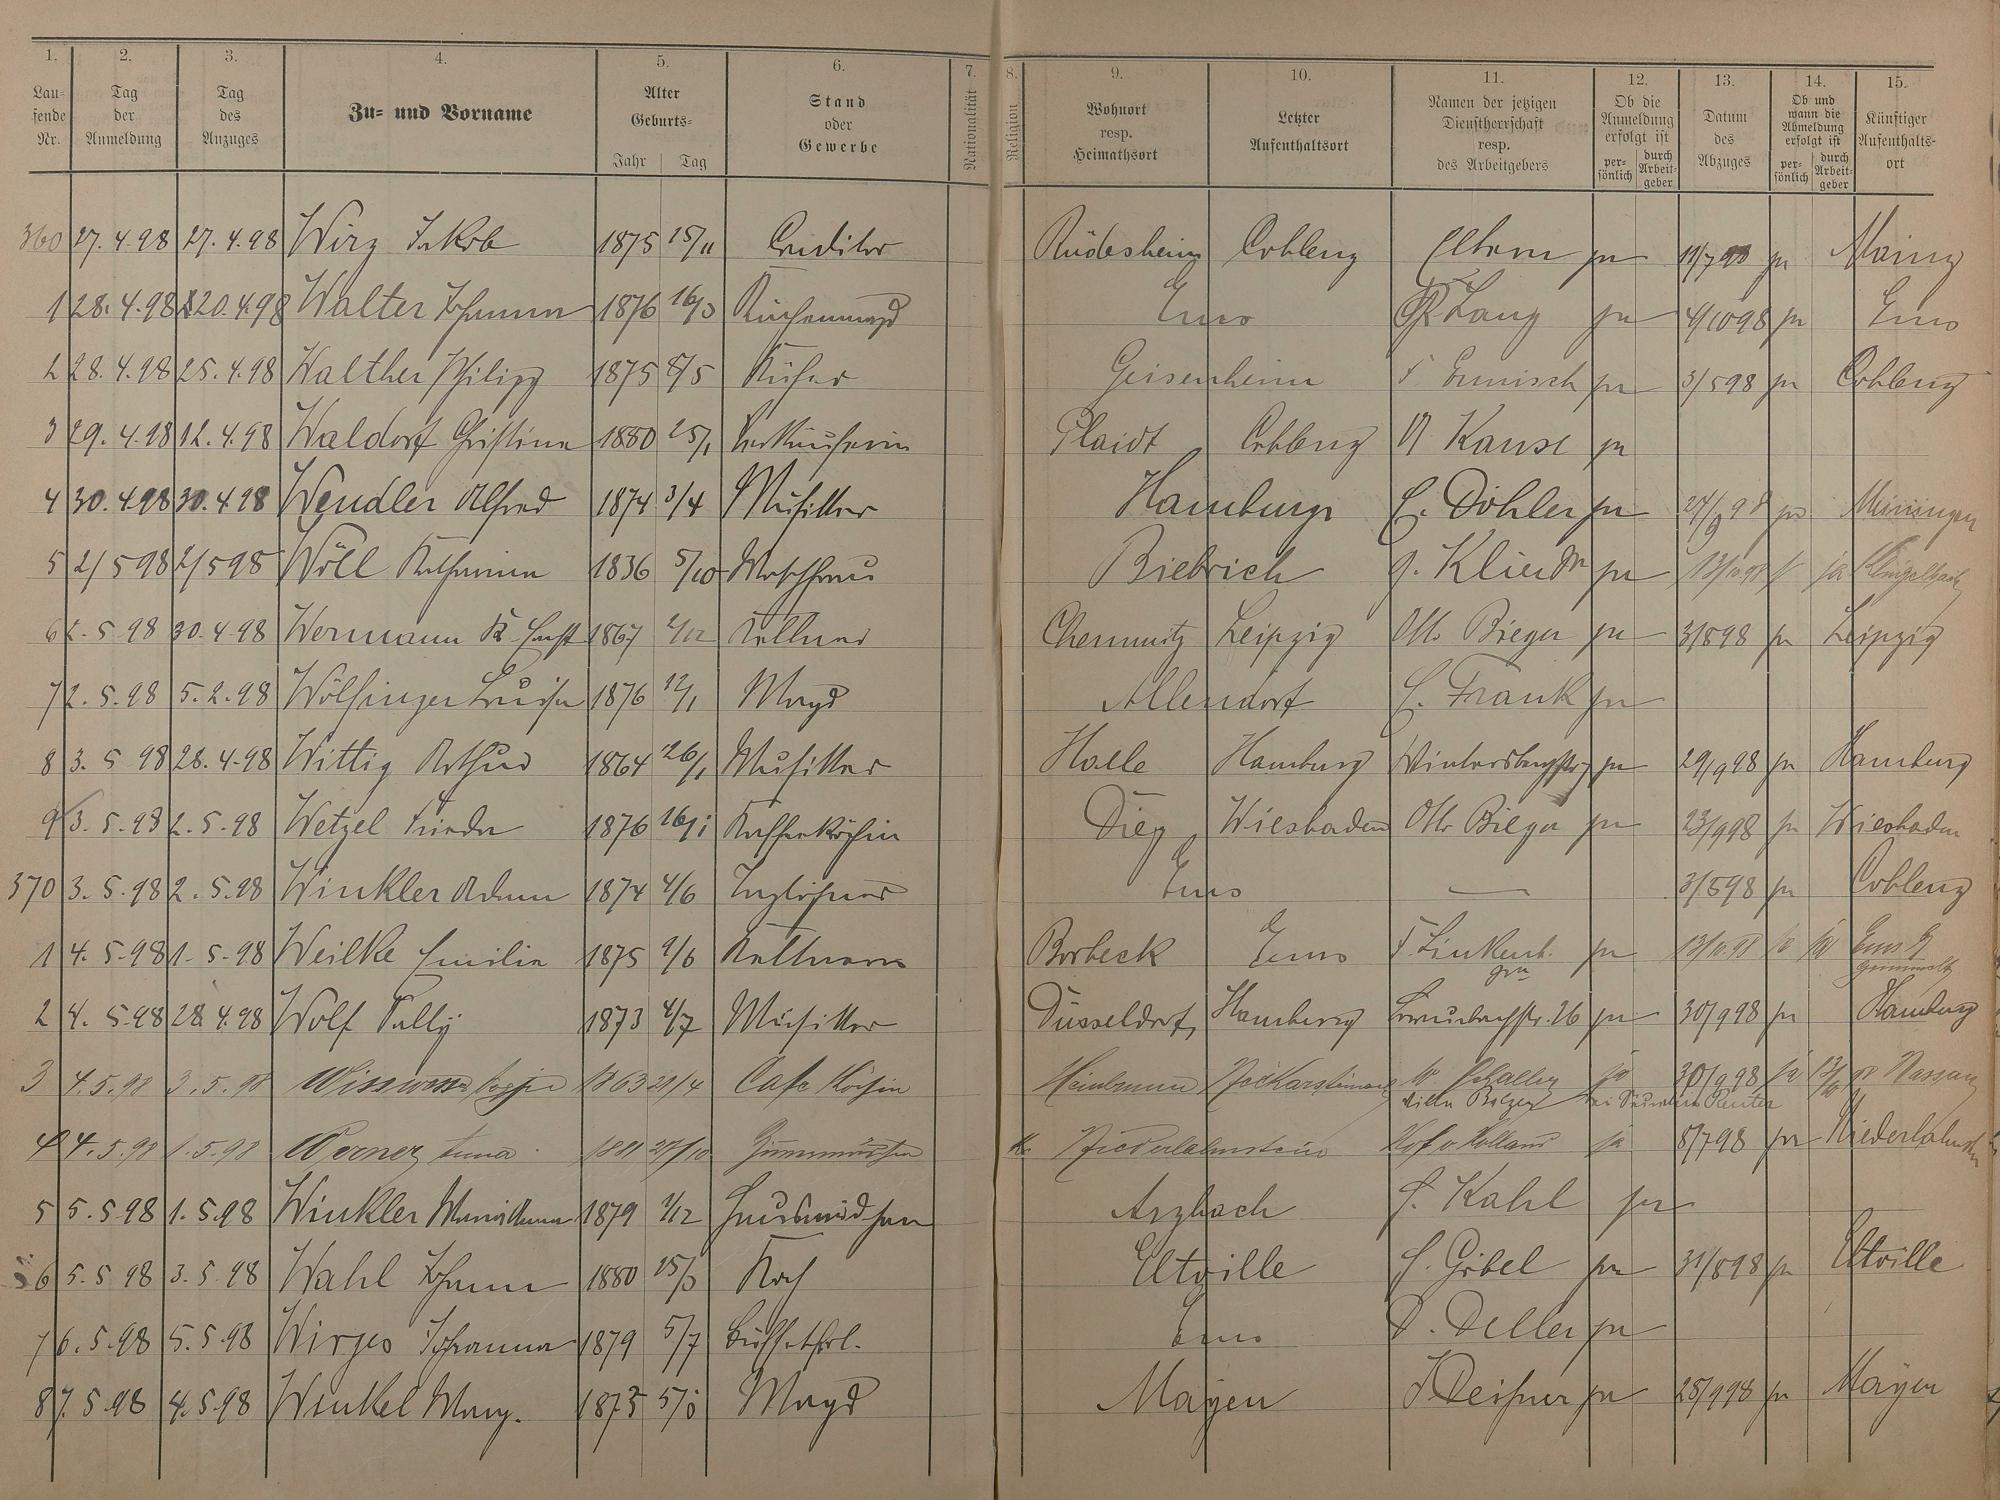 1. 2. 3. 4. 5. 6. 7. 8. 9. 10. 11. 12. 13. 14. 15.
Laufende Nr. Tag der Anmeldung Tag des Anzuges Zu- und Vorname Alter Geburts- Jahr Tag Stand oder Gewerbe Nationalität Religion Wohnort resp. Heimathsort Letzter Aufenthaltsort Namen der jetzigen Dienstherrschaft resp. des Arbeitgebers Ob die Anmeldung erfolgt ist persönlich durch Arbeitgeber Datum des Abzuges Ob und wann die Abmeldung erfolgt ist persönlich durch Arbeitgeber Künftiger Aufenthaltsort
360 27.4.98 27.4.98 Wirz Jakob 1875 15/11 Conditor Rüdesheim Coblenz Eltern 11/7 98 Mainz
1 28.4.98 20.4.98 Walter Johanna 1876 16/3 Küchenmagd Ems Lang 4/10 98 Ems
2 28.4.98 25.4.98 Walther Philipp 1875 8/5 Küfer Geisenheim 3/5 98 Coblenz
3 29.4.98 12.4.98 Waldorf Christina 1880 25/1 Verkäuferin Plaidt Coblenz Kause
4 30.4.98 30.4.98 Wendler Alfred 1874 3/4 Musiker Hamburg E. Döhler 24/9 98 Meiningen
5 2/5 98 2/5 98 Wöll Katharina 1836 5/10 Waschfrau Biebrich 13/10.98 ja Klingelbach
6 2.5.98 30.4.98 Wermann K. Ernst 1867 2/12 Kellner Chemnitz Leipzig Otto Bieger 3/8 98 Leipzig
7 2.5.98 5.2.98 Wölfinger Louise 1876 12/1 Magd Allendorf E. Frank
8 3.5.98 28.4.98 Wittig Arthur 1864 26/1 Musiker Halle Hamburg Wintersbergstr 29/9 98 Hamburg
9 3.5.98 2.5.98 Wetzel Frieda 1876 16/1 Kaffeeköchin Diez Wiesbaden Otto Bieger 23/9 98 Wiesbaden
370 3.5.98 2.5.98 Winkler Adam 1874 4/6 Taglöhner Ems — 3/5 98 Coblenz
1 4.5.98 1.5.98 Weilke Emilie 1875 9/6 Borbeck Ems F. Linkenb. 13/10.98 Ems
2 4.5.98 28.4.98 Wolf Willy 1873 4/7 Musiker Düsseldorf, Hamburg 26 30/9 98 Hamburg
3 4.5.98 3.5.98 1863 21/4 Cafe Köchin ja 30/9 98 ja Nassau
4 4.5.98 1.5.98 Werner Anna 1881 Zimmermädchen Niederlahnstein Hof v. Holland ja 8/7 98 Niederlahnstein
5 5.5.98 1.5.98 Winkler Maria Anna 1879 2/12 Hausmädchen Arzbach Kahl
6 5.5.98 3.5.98 Wahl Johann 1880 15/3 Koch Eltville Göbel 31/8 98 Eltville
7 6.5.98 5.5.98 Wirges Johanna 1879 5/7 Büffetfrl. Ems D. Deller
8 7.5.98 4.5.98 Winkel Marg. 1875 Magd Mayen 25/9 98 Mayen